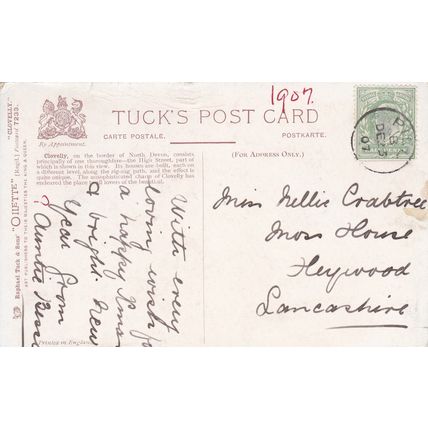 1907.
TUCK'S POST CARD
CARTE POSTALE.
POSTKARTE.
By Appointment.
(FOR ADDRESS ONLY.)
Clovelly, on the border of North Devon, consists
principally of one thoroughfare—the High Street, part of
which is shown in this view. Its houses are built, each on
a different level, along the zig-zag path, and the effect is
quite unique. The unsophisticated charm of Clovelly has
endeared the place to all lovers of the beautiful.
With every
loving wish for
a happy Xmas
& bright New
Year from
Auntie
Miss Nellie Crabtree
Moss House
Heywood
Lancashire
DE
07
"CLOVELLY."
"OILETTE" [Regd.] Postcard 7233.
Raphael Tuck & Sons'
ART PUBLISHERS TO THEIR MAJESTIES THE KING & QUEEN.
Printed in England